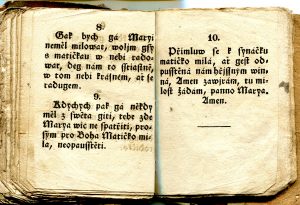 8.
Gak bych gá Maryi
neměl milowat, wossim gsy
s matičkau w nebi rado-
wat, deg nám to sstiastně,
w tom nebi krásném, ať se
radugem.
9.
Kdybych pak gá někdy
měl z swěta gíti, tebe zde
Marya wíc ne spatřiti, pro-
sým pro Boha Matičko mi-
la, neopausstěti.
10.
Přimluw se k synáčku
matičko milá, ať gest od-
pusstěná nám hřjssným win-
ná, Amen zawjrám, tu mi-
lost žádám, panno Marya.
Amen.